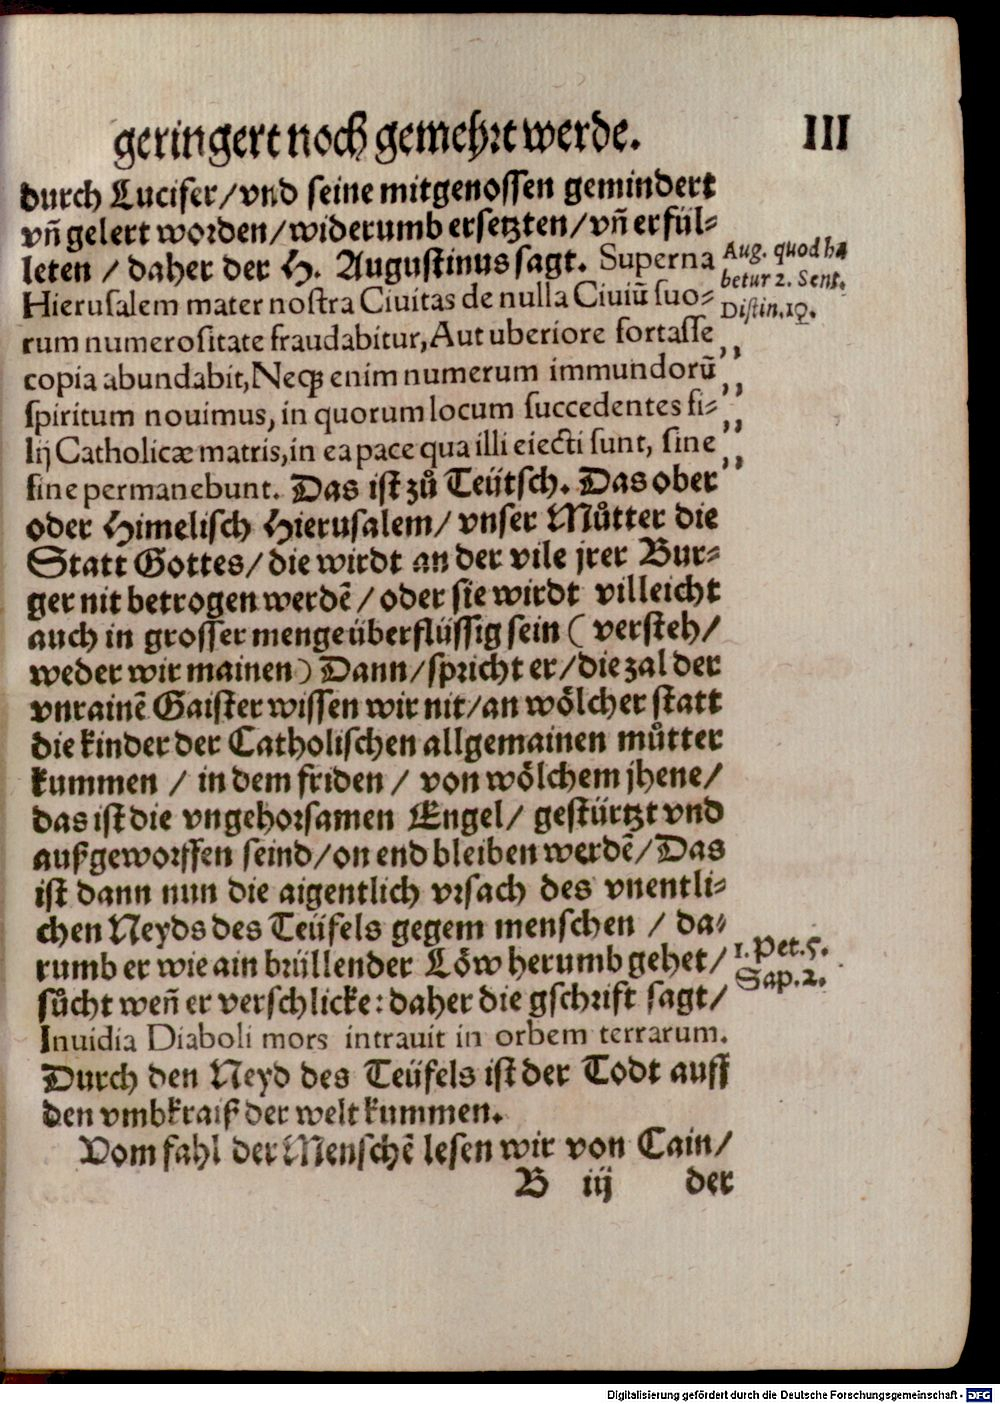 geringert noch gemehrt werde. III
durch Lucifer/vnd seine mitgenossen gemindert
vñ gelert worden/widerumb ersetzten/vñ erfül⸗
leten / daher der H. Augustinus sagt. Superna
Aug. quod ha
betur 2. Sent.
Distin.19.
Hierusalem mater nostra Ciuitas de nulla Ciuiũ suo⸗
rum numerositate fraudabitur,Aut uberiore fortasse ,,
copia abundabit,Neqȝ enim numerum immundorũ ,,
spiritum nouimus, in quorum locum succedentes fi⸗ ,,
lij Catholicæ matris,in ea pace qua illi eiecti sunt, sine ,,
fine permanebunt. Das ist zů Teütsch. Das ober
oder Himelisch Hierusalem/ vnser Můtter die
Statt Gottes/ die wirdt an der vile jrer Bur⸗
ger nit betrogen werdẽ / oder sie wirdt villeicht
auch in grosser menge überflüssig sein ( versteh/
weder wir mainen) Dann/spricht er/die zal der
vnrainẽ Gaister wissen wir nit/an wölcher statt
die kinder der Catholischen allgemainen můtter
kummen / in dem friden / von wölchem jhene/
das ist die vngehorsamen Engel/ gestürtzt vnd
außgeworffen seind/on end bleiben werdẽ/Das
ist dann nun die aigentlich vrsach des vnentli⸗
chen Neyds des Teüfels gegem menschen / da⸗
rumb er wie ain brüllender Löw herumb gehet/
1. Pet.5.
Sap.2.
sůcht weñ er verschlicke: daher die gschrift sagt/
Inuidia Diaboli mors intrauit in orbem terrarum.
Durch den Neyd des Teüfels ist der Todt auff
den vmbkraiß der welt kummen.
Vom fahl der Menschẽ lesen wir von Cain/
B iij der
Digitalisierung gefördert durch die Deutsche Forschungsgemeinschaft - DFG